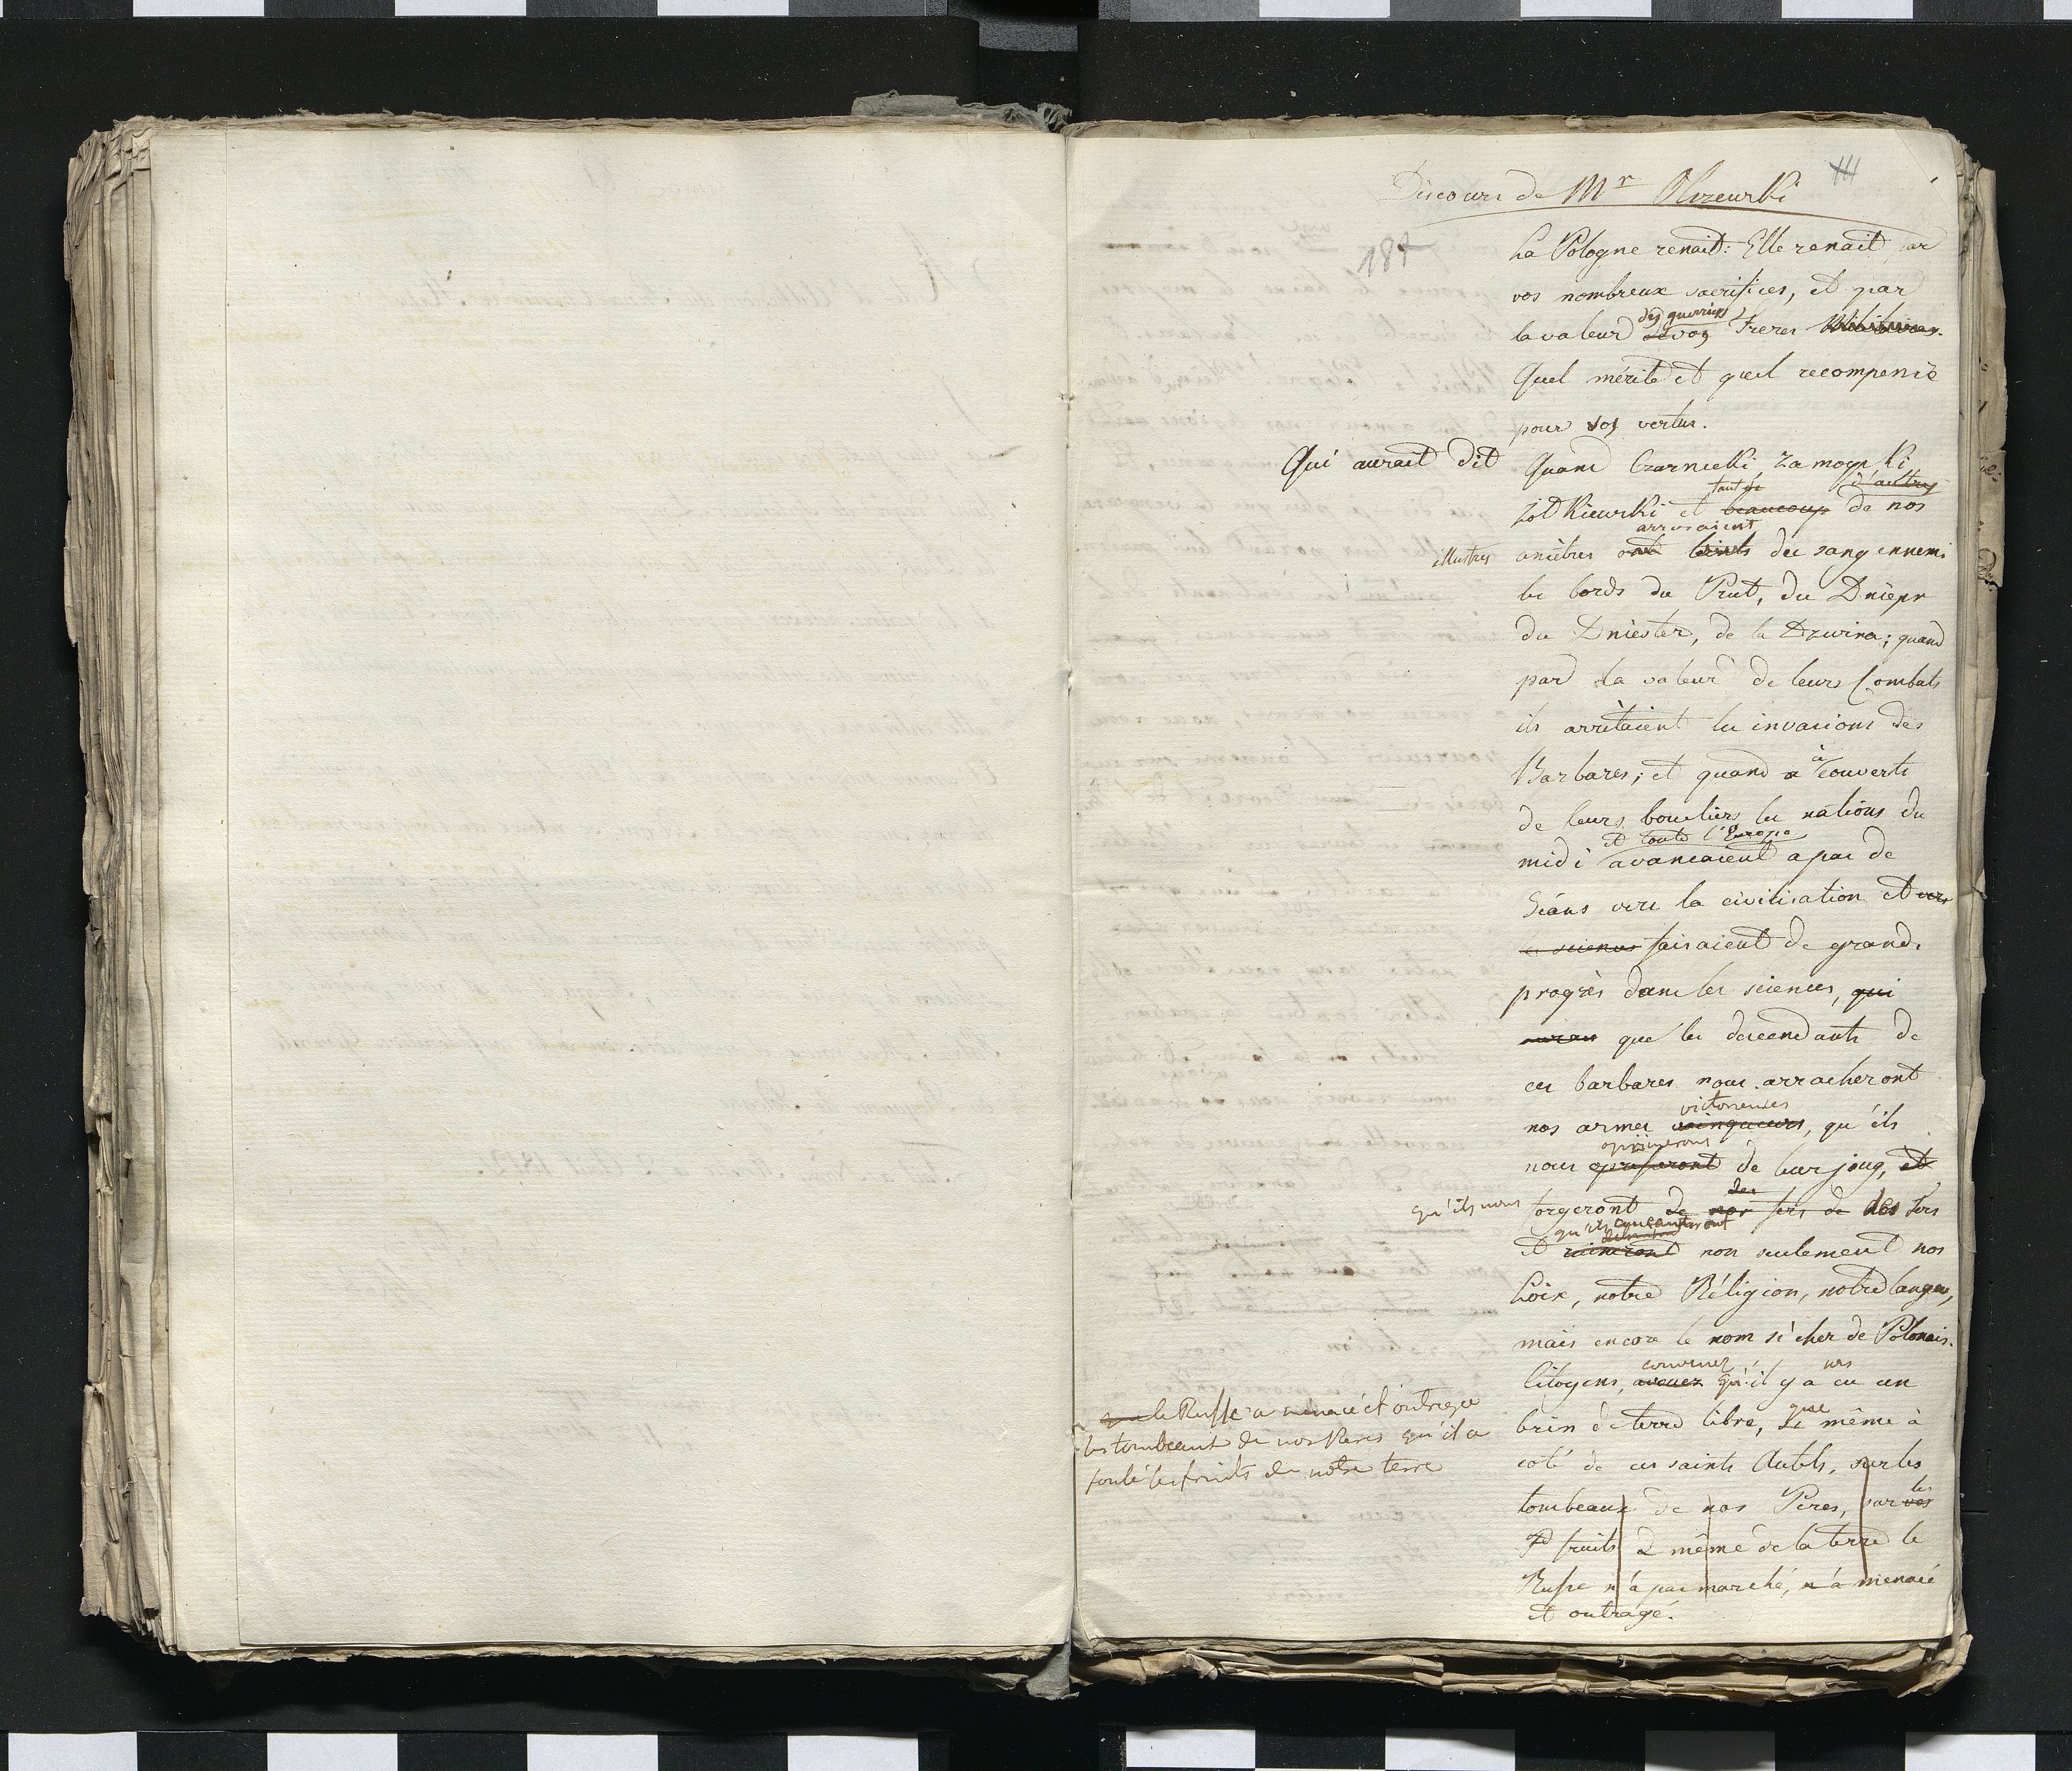 Discours de Mr Olszewski
III
187
La Pologne renait: Elle renait par
vos nombreux sacrifices, et par
des guerriers
la valeur de vos Freres Militaires.
Quel mérite et quel recompense
pour vos vertus.
Qui aurait dit Quand Czarnecki, Zamoyski
tant de d'autres
Zolkiewski et beaucoup de nos
arrosaient
illustres ancêtres ont teint du sang ennemi
les bords du Prut, du Dniepr
du Dniester, de la Dzwina; quand
par la valeur de leurs Combats
ils arrêtaient les invasions des
à
Barbares; et quand a couverts
de leurs boucliers les nations du
et toute l'Europe
midi avancaient a pas de
Géans vers la civilisation et vers
les sciences faisaient de grands
progrès dans les sciences, qui
que les descendants de
ces barbares nous arracheront
victorieuses
nos armes vainqueurs, qu'ils
opprimeront
nous opresseront de leur joug, et
des
qu'ils nous forgeront de nos fers de des fers
qu'ils aneantiront
et ruineront non seulement nos
Loix, notre Réligion, notre langue,
mais encore le nom si cher de Polonais.
convenez
Citoyens, avouez qu'il y a eu un
que
brin de terre libre, si même à
coté de ces saints Autels, sur les
les
tombeaux de nos Peres, sur vos
fruits même de la terre le
Russe n'a pas marché, n'a menacé
et outragé.
que le Russe a menacé et outragé
les tombeaux de nos Peres qu'il a
foulé les fruits de notre terre